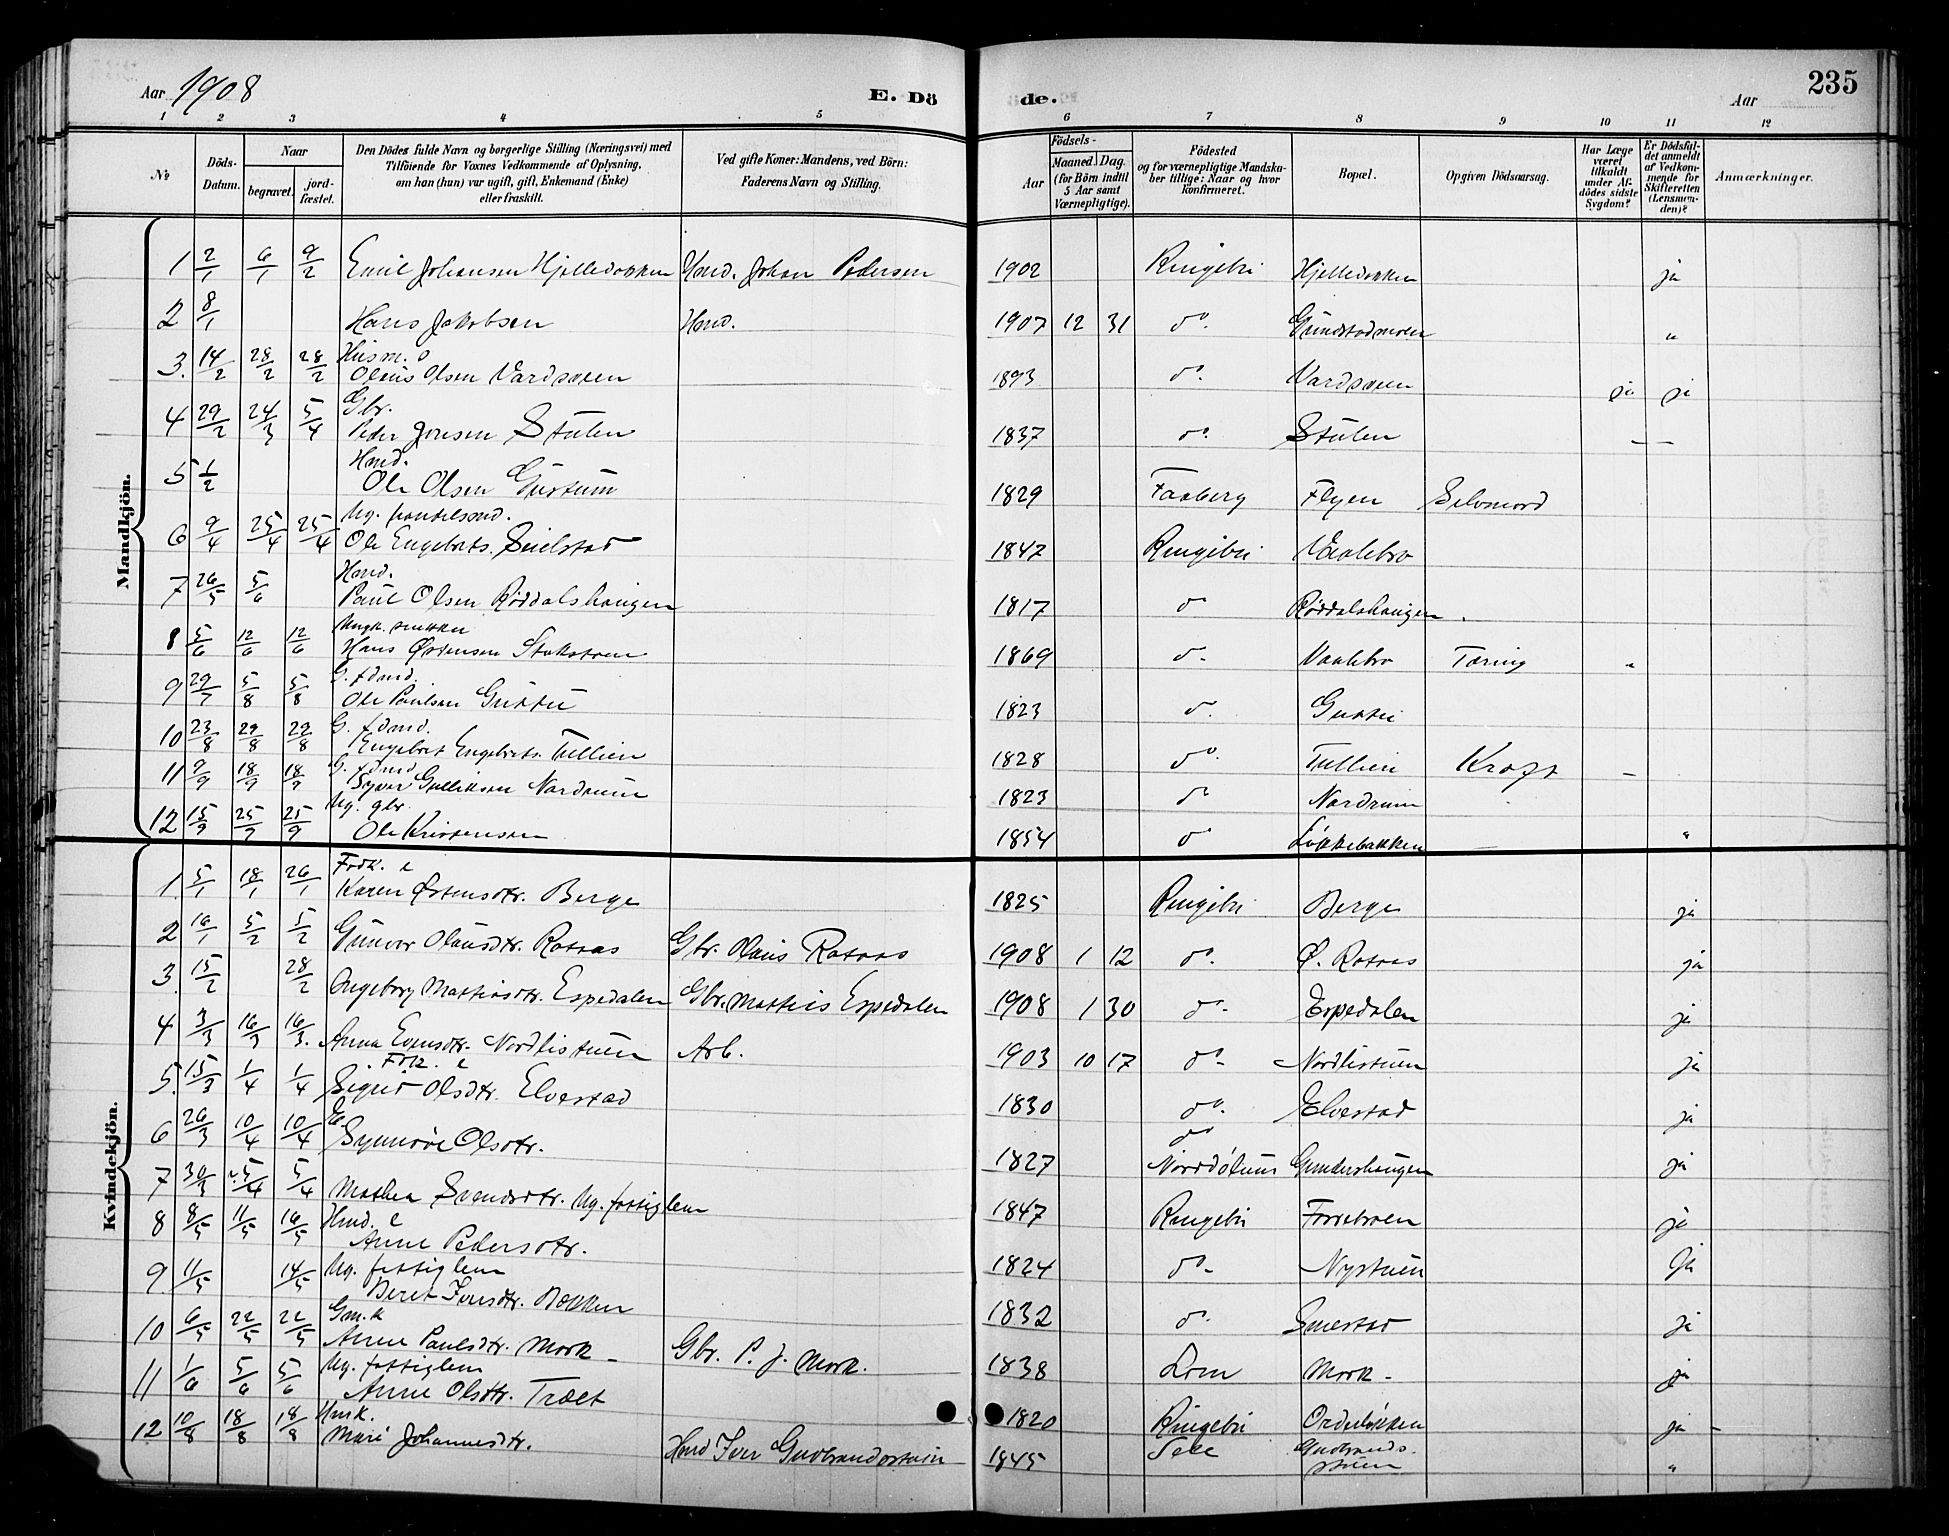 Aar 1908
E. Dö
de.
Aar
235
1 2 3 4 5 6 7 8 9 10 11 12
No
Döds-Datum.
Naar
begravet.
jord-fæstet.
Den Dödes fulde Navn og borgerlige Stilling (Næringsvei) med
Tilföiende for Voxnes Vedkommende af Oplysning,
om han (hun) var ugift, gift, Enkemand (Enke)
eller fraskilt.
Ved gifte Koner: Mandens, ved Börn:
Faderens Navn og Stilling.
Födsels-
Aar
Maaned. Dag.
(for Börn indtil
5 Aar samt
Værnepligtige).
Födested
og for værnepligtige Mandska-
ber tillige: Naar og hvor
konfirmeret.
Bopæl.
Opgiven Dödsaarsag.
Har Læge
været
tilkaldt
under Af-
dödes sidste
Sygdom?
Er Dödsfal-
det anmeldt
af Vedkom-
mende for
Skifteretten
(Lensman-
den)?
Anmærkninger.
Mandkjön.
1 2/1 6/1 9/2 Emil Johansen Hjelledokken Hmd. Johan Pedersen 1902 Ringebu Hjelledokken ja
2 8/1 Hans Jakobsen Hmd. 1907 12 31 do. Gundstadmoen "
3. 14/2 28/2 28/2 Husm. s Olaus Olsen Vardsveen 1893 do. Vardsveen ja ja
4 29/2 24/3 5/4 Gbr. Peder Jonsen Stulen 1837 do. Stulen —
5 1/2 Hmd. Ole Olsen Gustum 1829 Faaberg Flyen Selvmord
6 9/4 25/4 25/4 Ug. handelsmd. Ole Engebrets. Sielstad 1847 Ringebu Vaalebro
7 26/5 5/6 Hmd. Paul Olsen Røddalshaugen 1817 do Røddalshaugen
8 5/6 12/6 12/6 Ungk. snekker Hans Østensen Stokstoen 1869 do Vaalebro Tæring "
9 29/7 5/8 5/8 G. fdmd. Ole Paulsen Gustu 1823 do. Gustu
10 23/8 29/8 29/8 G. fdmd. Engebret Engebrets. Tullien 1828 do. Tullien Kræft —
11 9/9 18/9 18/9 G. fdmd Syver Gulliksen Nordrum 1823 do Nordrum
12 15/9 25/9 25/9 Ug. gbr. Ole Kristensen 1854 do Løkkebakken "
Kvindekjön.
1. 5/1 18/1 26/1 Fodk. e Karen Østensdtr. Berge 1825 Ringebu Berge ja
2 16/1 5/2 5/2 Gunvor Olausdtr. Rotaas Gbr. Olaus Rotaas 1908 1 12 do. Ø. Rotaas ja
3. 15/2 28/2 Ingeborg Mathiasdtr. Espedalen Gbr. Mathis Espedalen 1908 1 30 do. Espedalen ja
4 3/3 16/3 16/3. Anna Evensdtr. Nordlistuen Arb. 1903 10 17 do. Nordlistuen ja
5. 15/3 1/4 1/4 Fdk. e Sigrid Olsdtr. Elvestad 1830 do. Elvestad ja
6 26/3 10/4 10/4 E. Synnøve Olsdtr. 1827 do Norddølum Gundershaugen ja
7 30/3 5/4 5/4 Mathea Svendsdtr. Ug. fattiglem 1847 Ringebu Forebroen ja
8 8/5 11/5 16/5 Hmd. e Anne Pedersdtr. 1824 do. Nystuen ja
9. 11/5 14/5 Ug. fattiglem Beret Iversdtr. Bækken 1832 do. Smestad ja
10 6/5 22/5 22/5 Gm.k Anne Paulsdtr. Mork Gbr. P. J. Mork. 1838 Lom Mork ja
11 1/6 5/6 5/6 Ug. fattiglem Anne Olsdtr. Træet 1820 Ringebu Ordeløkken ja
12 10/8 18/8 18/8 Hmk. Mari Johannesdtr. Hmd Iver Gudbrandsstuen 1845 Sell Gudbrands-stuen "